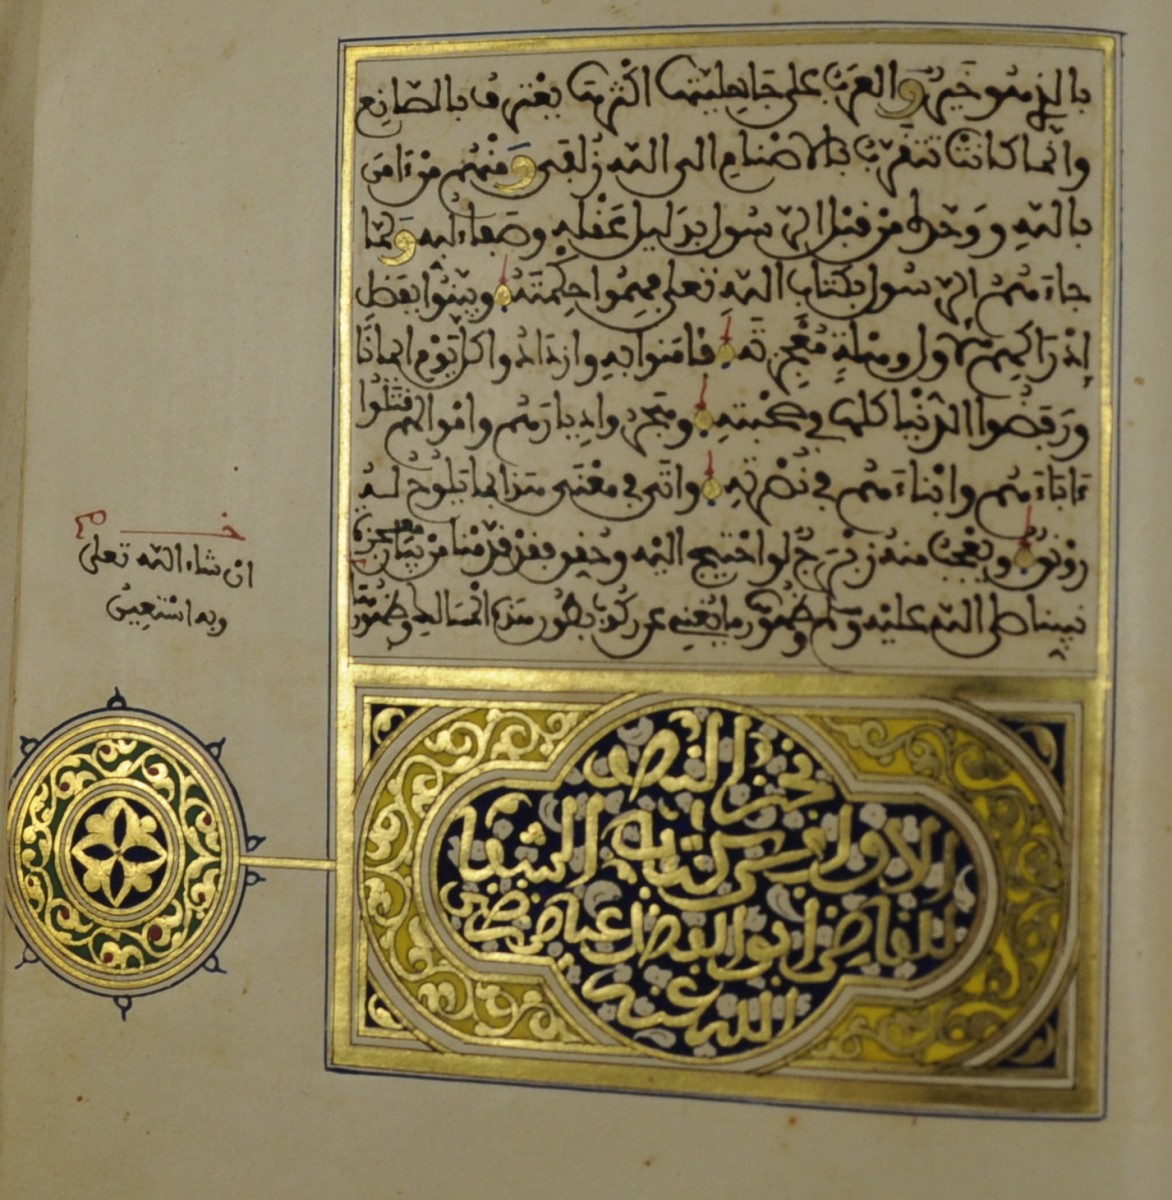 بالذي هو خير والعرب على جاهليتها أكثرها يعترف بالصانع
وإنما كانت تتقرب بالاصنام الى الله زلفى ومنهم من ءامن
بالله وحده من قبل الرسول بدليل عقله وصفاء لبه ولما
جاءهم الرسول بكتاب الله تعلى فهموا حكمته وتبينوا بفضل
إدراكهم لأول وهلة معجزته فآمنوا به وازدادوا كل يوم إيمانا
ورفضوا الدنيا كلها في صحبته وهجروا ديارهم وأموالهم وقتلوا
ءاباءهم وأبناءهم في نصرته وأتى في معنى هذا بما يلوح له
رونق ويعجب منه زبرج لو احتيج اليه وحقق فقد قدمنا من بيان معجزة
نبينا صلى الله عليه وسلم وظهورها ما يغني عن ركوب بطون هذه المسالك وظهورها
ان شاء الله تعلى
وبه استعين
نجز النصف
الاول من كتاب الشفا
للقاضي ابو الفضل عياض رضي
الله عنه